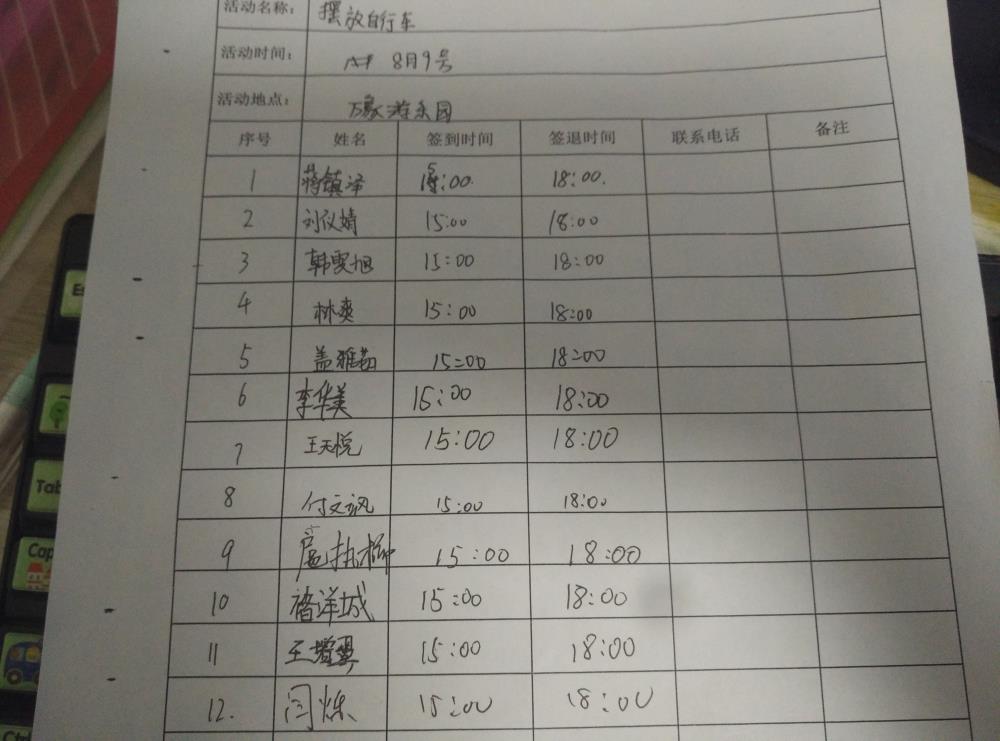 活动名称： 摆放自行车
活动时间： 8月9号
活动地点： 万象游乐园
序号 姓名 签到时间 签退时间 联系电话 备注
1 蒋镇泽 15:00 18:00
2 刘仪婧 15:00 18:00
3 韩雯旭 15:00 18:00
4 林爽 15:00 18:00
5 盖雅茹 15:00 18:00
6 李华美 15:00 18:00
7 王天悦 15:00 18:00
8 付文 15:00 18:00
9 15:00 18:00
10 褚洋城 15:00 18:00
11 王 15:00 18:00
12. 闫烁 15:00 18:00
Tab
Cap
Ctrl